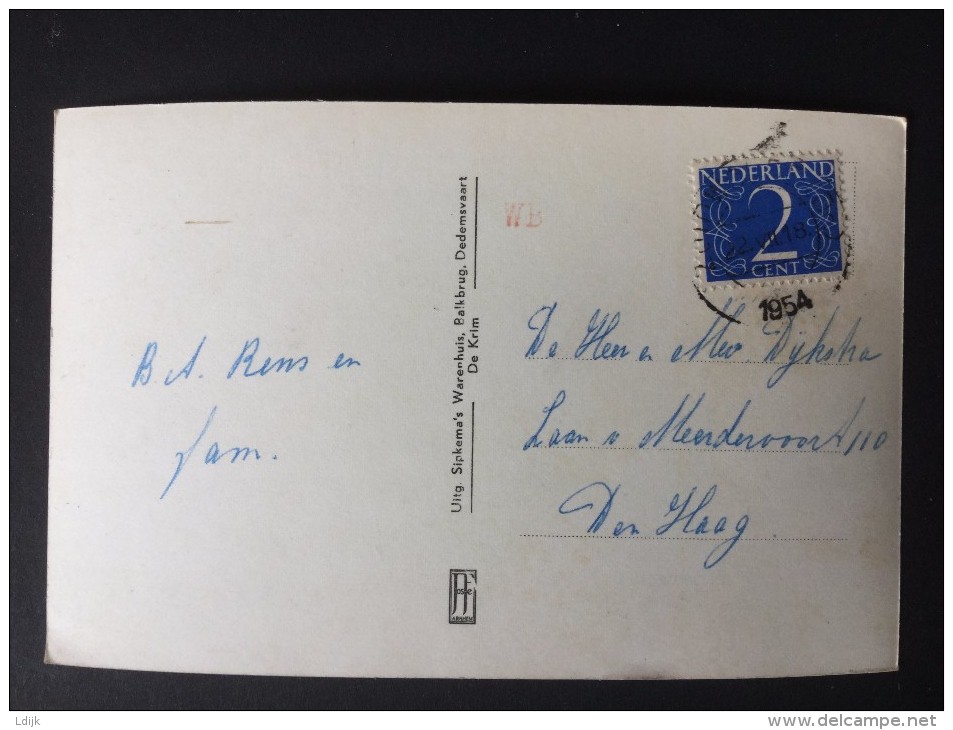 B.A. Rens en
fam.
Uitg. Sipkema's Warenhuis, Balkbrug, Dedemsvaart
De Krim
WB
NEDERLAND
2
CENT
22.VII.18
1954
De Heer en Mev. Dijkstra
Laan v Meerdervoort 110
Den Haag
ARNHEM
Ldijk
delcampe.net